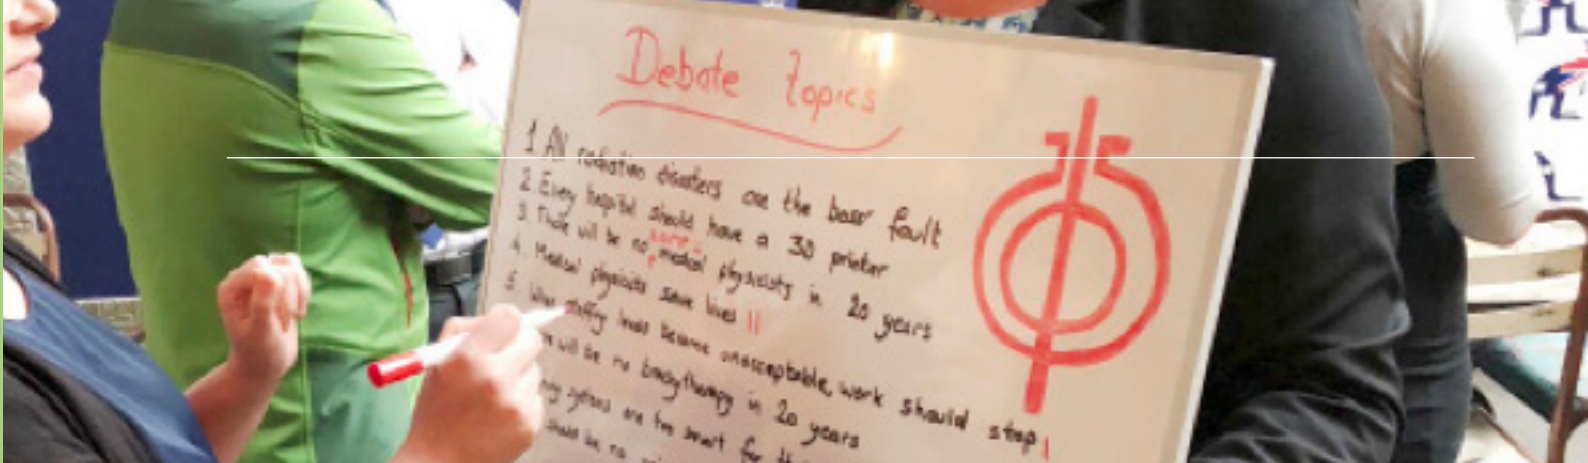 Debate topics
1. All radiation disasters are the boss' fault
2. Every hospital should have a 3D printer
3. There will be no more medical physicists in 20 years
4. Medical physicists save lives
5. When staffing levels become unacceptable, work should stop
will be no brachytherapy in 20 years
systems are too smart for
should be no